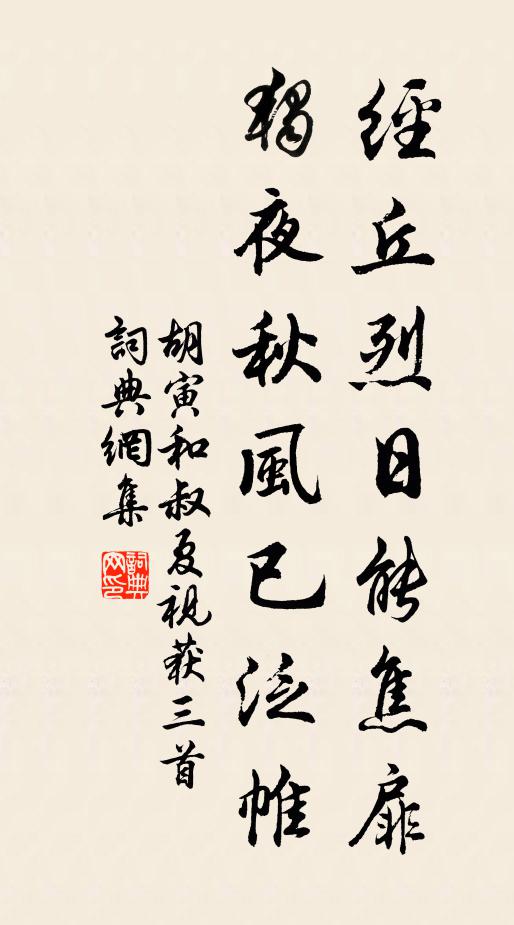 經丘烈日能焦扉
獨夜秋風已泛帷
胡寅和叔夏視获三首
詞典網集
詞典網印